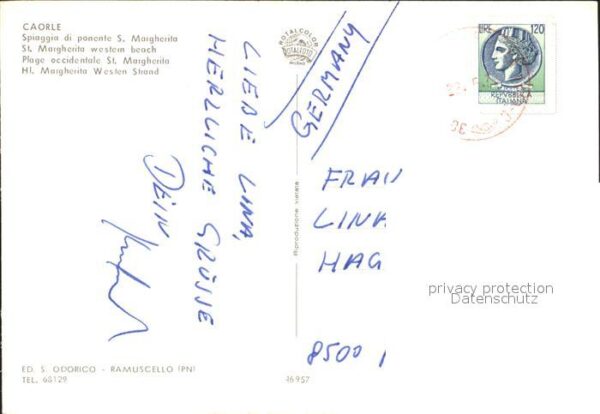 CAORLE
Spiaggia di ponente S. Margherita
St. Margherita western beach
Plage occidentale St. Margherita
Hl. Margherita Westen Strand
ROTALCOLOR
ROTALFOTO
MILANO
LIRE 120
REPVBBLICA
ITALIANA
GERMANY
LIEBE LINA,
HERZLICHE GRÜSSE
DEIN
FRAU
LINA
HAG
8500 1
privacy protection
Datenschutz
Riproduzione vietata
ED. S. ODORICO - RAMUSCELLO (PN)
TEL. 68129